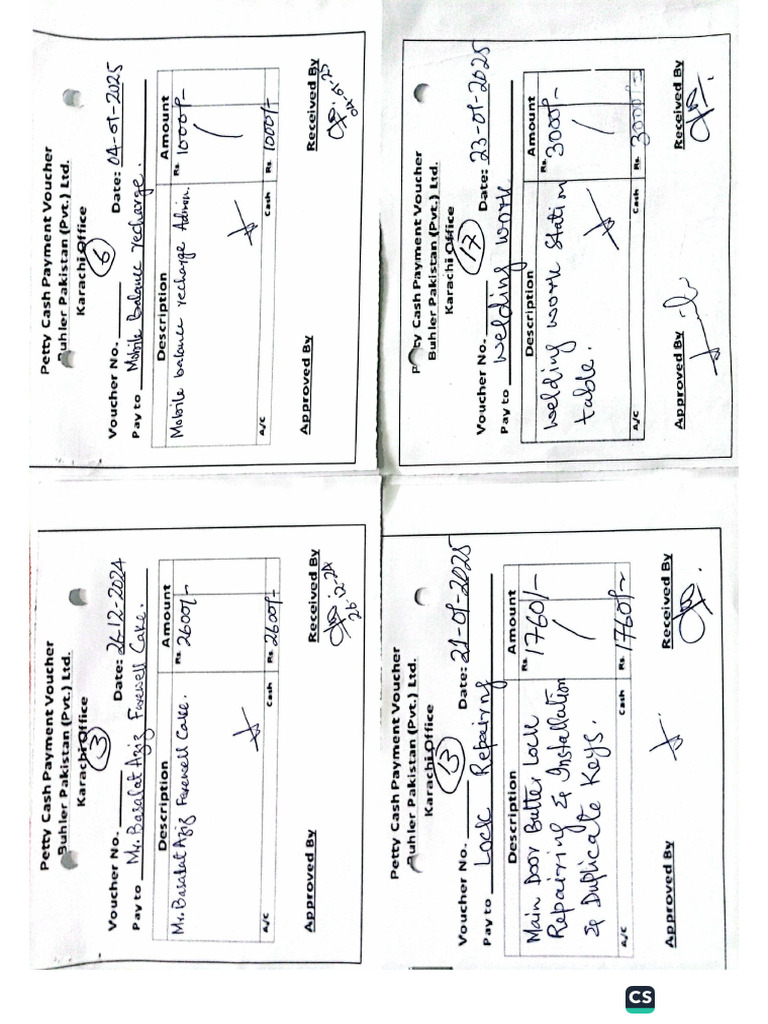 Petty Cash Payment Voucher
Buhler Pakistan (Pvt.) Ltd.
Karachi Office
3
Voucher No. Date: 26-12-2024
Pay to Mr. Basalat Aziz Farewell Cake.
Description Amount
Mr. Basalat Aziz Farewell Cake. Rs. 2600/-
A/C Cash Rs. 2600/-
Approved By Received By
26-12-24
Petty Cash Payment Voucher
Buhler Pakistan (Pvt.) Ltd.
Karachi Office
6
Voucher No. Date: 04-01-2025
Pay to Mobile Balance recharge.
Description Amount
Mobile balance recharge Admin. Rs. 1000/-
A/C Cash Rs. 1000/-
Approved By Received By
04-01-25
Petty Cash Payment Voucher
Buhler Pakistan (Pvt.) Ltd.
Karachi Office
13
Voucher No. Date: 21-01-2025
Pay to Lock Repairing
Description Amount
Main Door Butter Lock Rs. 1760/-
Repairing & Installation
& Duplicate Keys.
A/C Cash Rs. 1760/-
Approved By Received By
Petty Cash Payment Voucher
Buhler Pakistan (Pvt.) Ltd.
Karachi Office
17
Voucher No. Date: 23-01-2025
Pay to Welding work
Description Amount
Welding work Station Rs. 3000/-
table.
A/C Cash Rs. 3000/-
Approved By Received By
CS